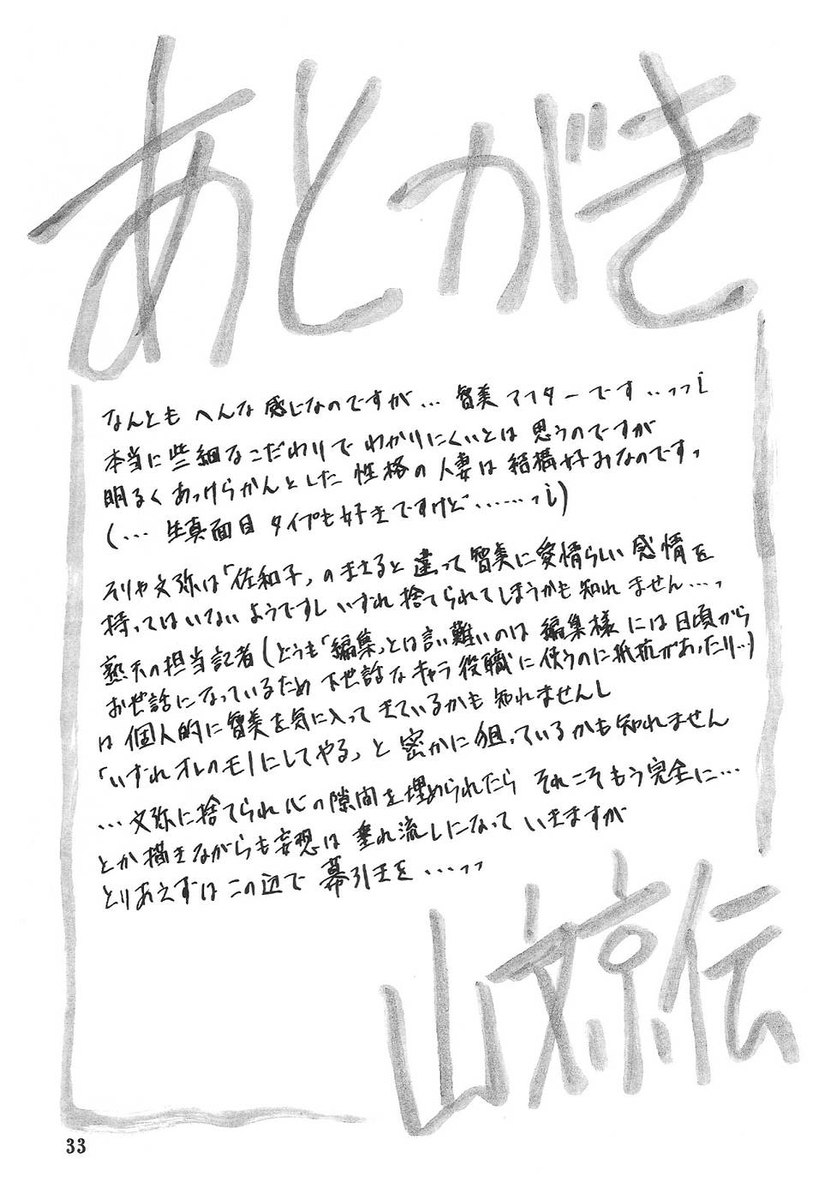 あとがき
なんとも へんな 感じなのですが… 智美アフターです‥‥っっi
本当に些細なこだわりで わかりにくいとは 思うのですが
明るく あっけらかんとした 性格の 人妻は 結構好みなのですっ
(… 生真面目 タイプも好きですけど……っi)
そりゃ文弥は「佐和子」のときと 違って智美に愛情らしい 感情を
持ってはいないようですし いずれ 捨てられてしまうかも 知れません…っ
熟天の担当記者(どうも「編集」とは言い難いのは 編集様 には日頃から
お世話になっているため 下世話な キャラ 役職に使うのに抵抗があったり…)
は 個人的に智美を気に入って きているかも 知れませんし
「いずれオレのモノにしてやる」と 密かに 狙っているかも知れません
… 文弥に捨てられ心の隙間を埋められたら それこそもう完全に…
とか描きながらも妄想は 垂れ流しになって いきますが
とりあえずは この辺で 幕引きを…っっ
山文京伝
33